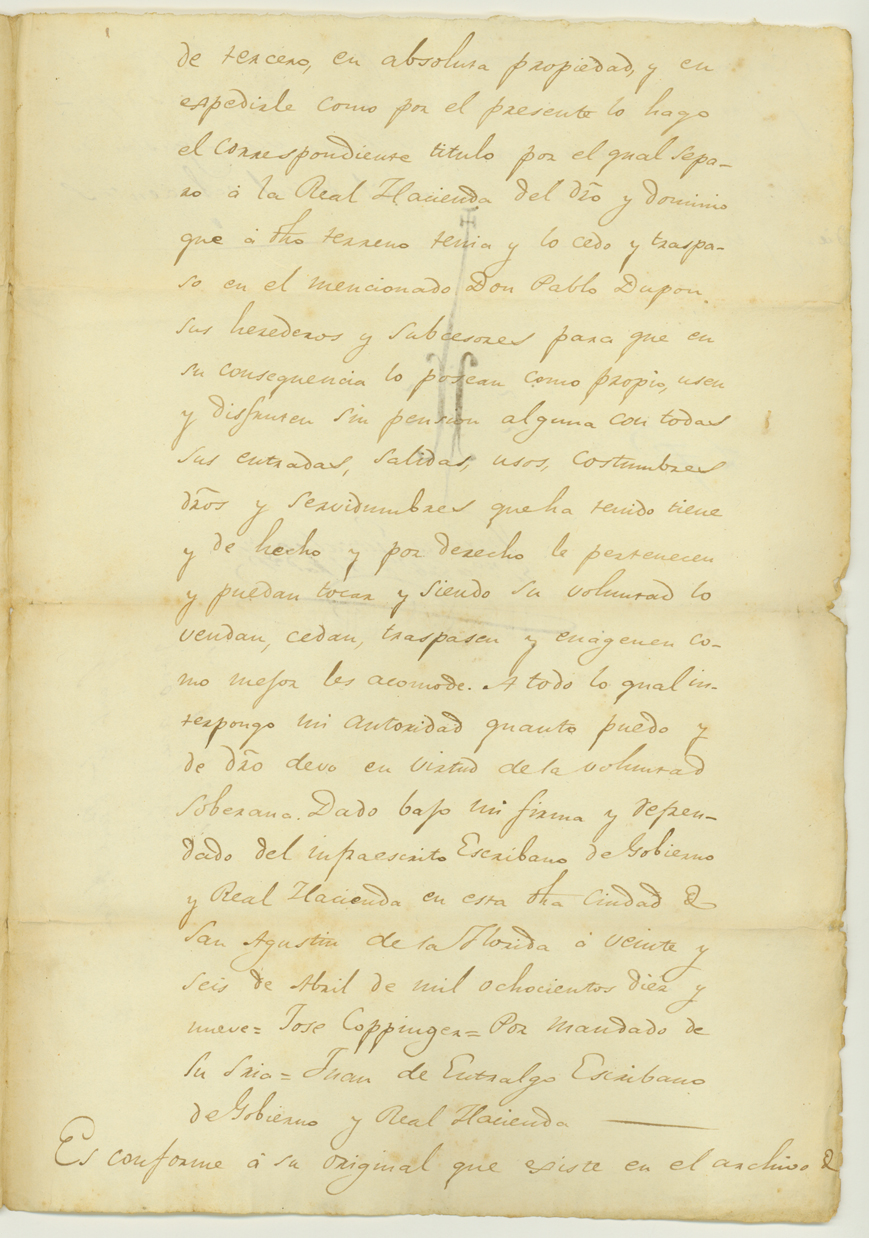 de tercero, en absoluta propiedad, y en
expedirle como por el presente lo hago
el correspondiente titulo por el qual sepa-
ro á la Real Hacienda del dr̃o y dominio
que á dho terreno tenia y lo cedo y traspa-
so en el mencionado Don Pablo Dupon,
sus herederos y subcesores para que en
su consequencia lo posean como propio, usen
y disfruten sin pension alguna con todas
sus entradas, salidas, usos, costumbres
dr̃os y servidumbres que ha tenido tiene
y de hecho y por derecho le pertenecen
y puedan tocar y siendo su voluntad lo
vendan, cedan, traspasen y enagenen co-
mo mejor les acomode. A todo lo qual in-
terpongo mi autoridad quanto puedo y
de dr̃o devo en virtud de la voluntad
soberana. Dado bajo mi firma y refren-
dado del infraescrito Escribano de Gobierno
y Real Hacienda en esta dha Ciudad de
San Agustin de la Florida á veinte y
seis de Abril de mil ochocientos diez y
nueve= Jose Coppinger= Por mandado de
su Sria= Juan de Entralgo Escribano
de Gobierno y Real Hacienda
Es conforme á su original que existe en el archivo de